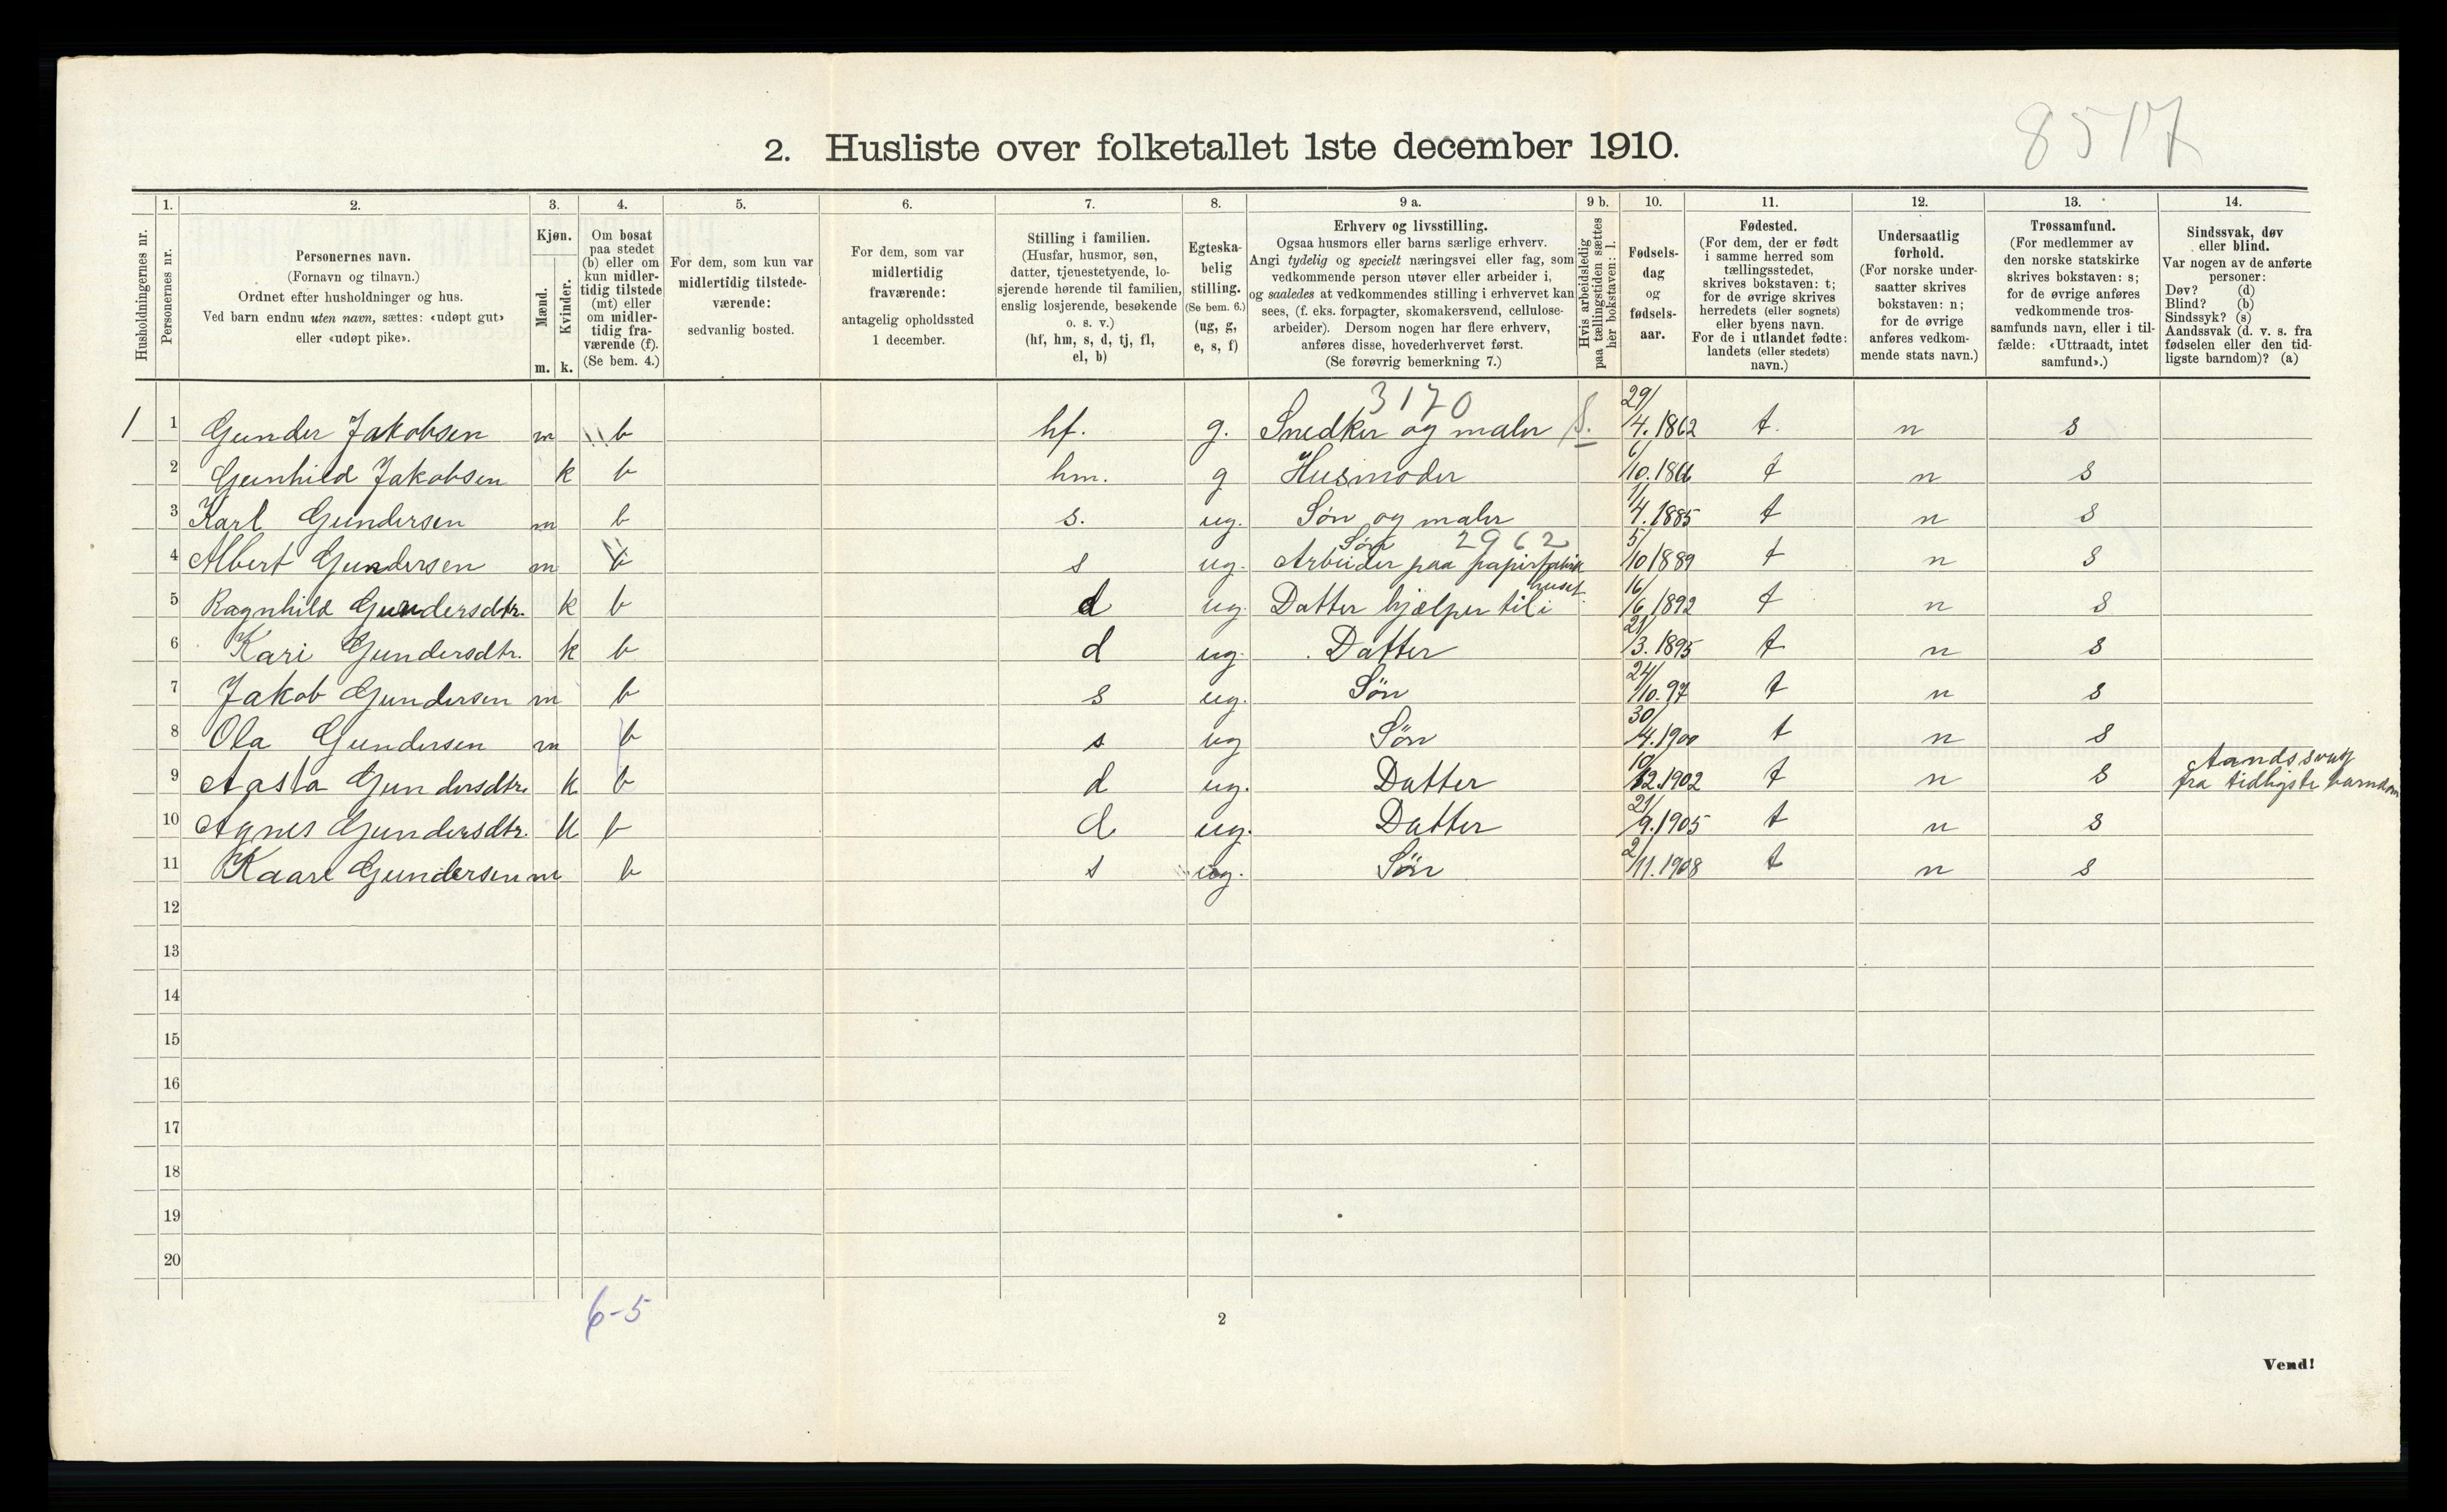 8517
2. Husliste over folketallet 1ste december 1910.
Husholdningernes nr.
1.
Personernes nr.
2.
Personernes navn.
(Fornavn og tilnavn.)
Ordnet efter husholdninger og hus.
Ved barn endnu uten navn, sættes: «udøpt gut»
eller «udøpt pike».
3.
Kjøn.
Mænd.
Kvinder.
m. k.
4.
Om bosat
paa stedet
(b) eller om
kun midler-
tidig tilstede
(mt) eller
om midler-
tidig fra-
værende (f).
(Se bem. 4.)
5.
For dem, som kun var
midlertidig tilstede-
værende:
sedvanlig bosted.
6.
For dem, som var
midlertidig
fraværende:
antagelig opholdssted
1 december.
7.
Stilling i familien.
(Husfar, husmor, søn,
datter, tjenestetyende, lo-
sjerende hørende til familien,
enslig losjerende, besøkende
o. s. v.)
(hf, hm, s, d, tj, fl,
el, b)
8.
Egteska-
belig
stilling.
(Se bem. 6.)
(ug, g,
e, s, f)
9 a.
Erhverv og livsstilling.
Ogsaa husmors eller barns særlige erhverv.
Angi tydelig og specielt næringsvei eller fag, som
vedkommende person utøver eller arbeider i,
og saaledes at vedkommendes stilling i erhvervet kan
sees, (f. eks. forpagter, skomakersvend, cellulose-
arbeider). Dersom nogen har flere erhverv,
anføres disse, hovederhvervet først.
(Se forøvrig bemerkning 7.)
9 b.
Hvis arbeidsledig
paa tællingstiden sættes
her bokstaven: l.
10.
Fødsels-
dag
og
fødsels-
aar.
11.
Fødested.
(For dem, der er født
i samme herred som
tællingsstedet,
skrives bokstaven: t;
for de øvrige skrives
herredets (eller sognets)
eller byens navn.
For de i utlandet fødte:
landets (eller stedets)
navn.)
12.
Undersaatlig
forhold.
(For norske under-
saatter skrives
bokstaven: n;
for de øvrige
anføres vedkom-
mende stats navn.)
13.
Trossamfund.
(For medlemmer av
den norske statskirke
skrives bokstaven: s;
for de øvrige anføres
vedkommende tros-
samfunds navn, eller i til-
fælde: «Uttraadt, intet
samfund».)
14.
Sindssvak, døv
eller blind.
Var nogen av de anførte
personer:
Døv? (d)
Blind? (b)
Sindssyk? (s)
Aandssvak (d. v. s. fra
fødselen eller den tid-
ligste barndom)? (a)
3170
1 1 Gunder Jakobsen m b hf. g. Snedker og maler 29/4. 1862 t n s
2 Gunhild Jakobsen k b hm. g Husmoder 6/10. 1866 t n s
3 Karl Gundersen m b s. ug. Søn og maler 1/4. 1885 t n s
Søn 2962
4 Albert Gundersen m b s ug. Arbeider paa papirfabrik 5/10 1889 t n s
5 Ragnhild Gundersdtr. k b d ug. Datter hjælper til i huset. 16/6 1892 t n s
6 Kari Gundersdtr. k b d ug. Datter 21/3. 1895 t n s
7 Jakob Gundersen m b s ug. Søn 24/10. 97 t n s
8 Ola Gundersen m b s ug Søn 30/4. 1900 t n s
9 Aasta Gundersdtr. k b d ug. Datter 10/12. 1902 t n s Aandssvag fra tidligste barndom
10 Agnes Gundersdtr. k b d ug. Datter 21/9. 1905 t n s
11 Kaare Gundersen m b s ug. Søn 2/11. 1908 t n s
12
13
14
15
16
17
18
19
20
6-5
2
Vend!